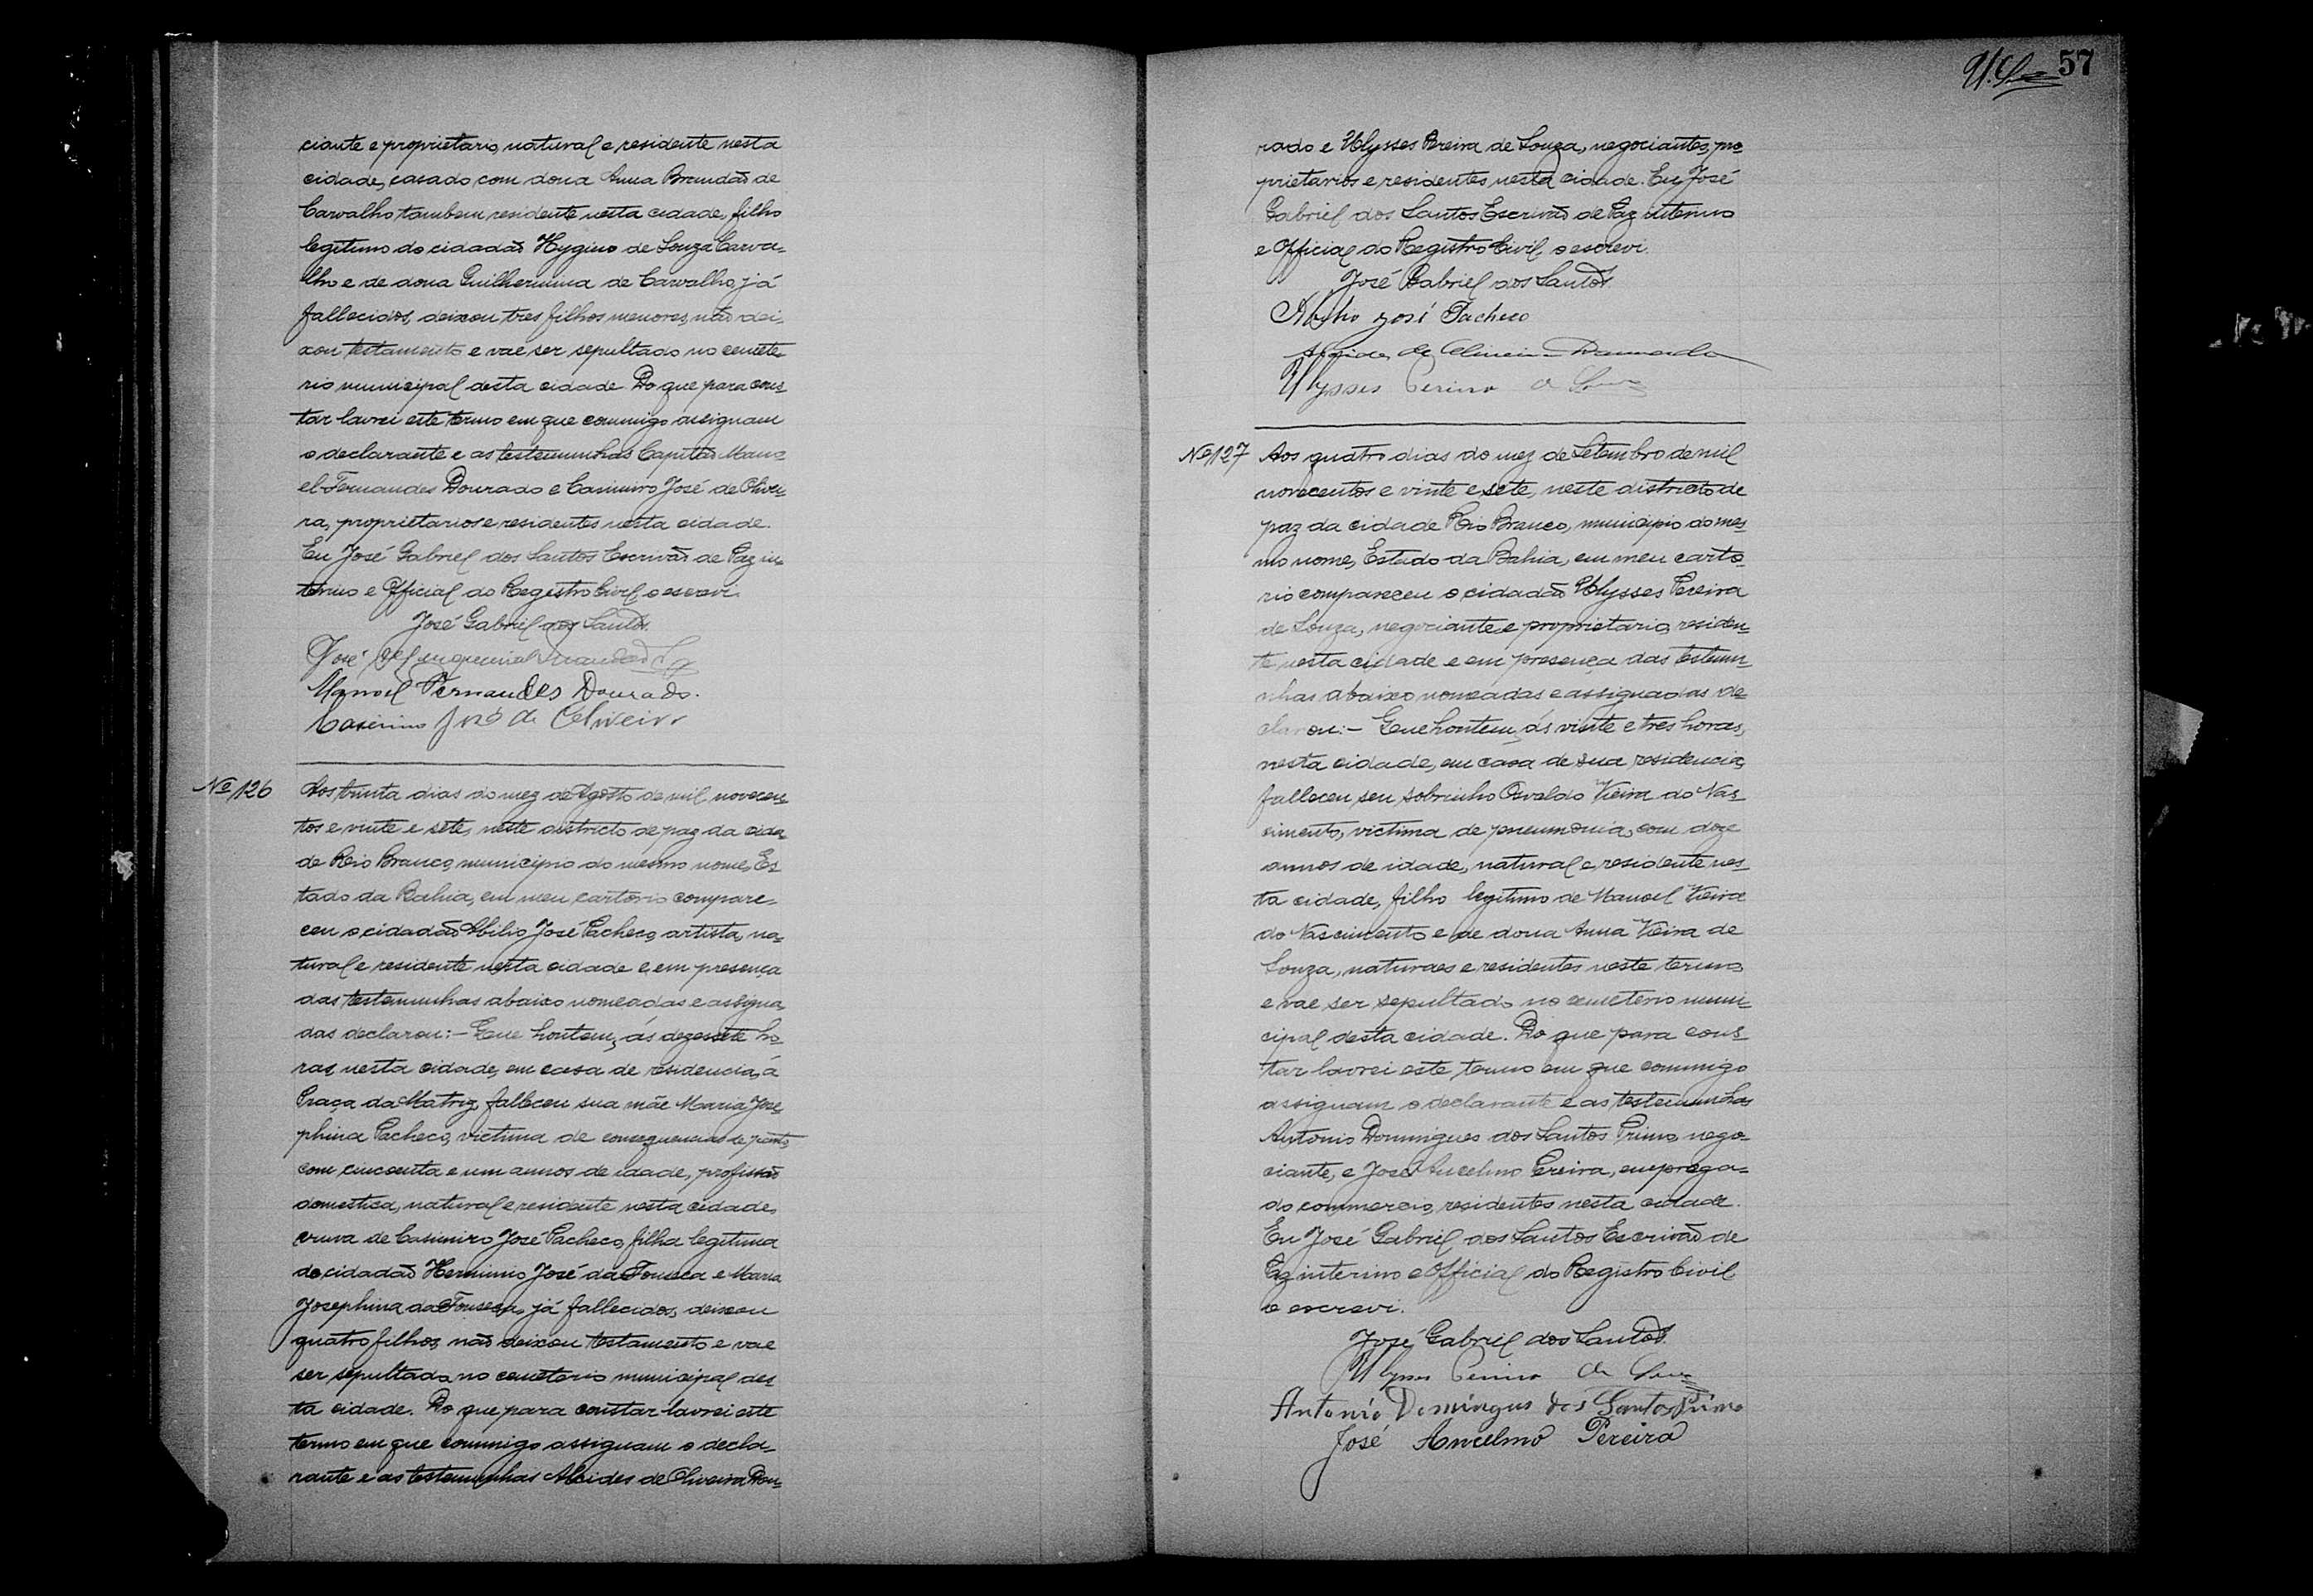 ciante e proprietario, natural e residente nesta
cidade, casado com dona Anna Brandão de
Carvalho tambem residente nesta cidade, filho
legitimo do cidadão Hygino de Souza Carva-
lho e de dona Guilhermina de Carvalho, já
fallecidos, deixou tres filhos menores, não dei-
xou testamento e vae ser sepultado no cemite-
rio municipal desta cidade. Do que para cons-
tar lavrei este termo em que commigo assignam
o declarante e as testemunhas Capitão Mano-
el Fernandes Dourado e Casimiro José de Olivei-
ra, proprietarios e residentes nesta cidade.
Eu José Gabriel dos Santos Escrivão de Paz in-
terino e Official do Registro Civil, o escrevi.
José Gabriel dos Santos.
José
Manoel Fernandes Dourado.
Casimiro José de Oliveira
Nº 126 Aos trinta dias do mez de Agosto de mil novecen-
tos e vinte e sete, neste districto de paz da cida-
de Rio Branco, municipio do mesmo nome, Es-
tado da Bahia, em meu cartorio compare-
ceu o cidadão Abilio José Pacheco, artista, na-
tural e residente nesta cidade e em presença
das testemunhas abaixo nomeadas e assigna-
das declarou:- Que hontem, ás dezessete ho-
ras, nesta cidade, em casa de residencia, á
Praça da Matriz, falleceu sua mãe Maria Jose-
phina Pacheco, victima de consequencias de parto,
com cincoenta e um annos de idade, profissão
domestica, natural e residente nesta cidade,
viuva de Casimiro José Pacheco, filha legitima
do cidadão Herminio José da Fonseca e Maria
Josephina da Fonseca, já fallecidos, deixou
quatro filhos, não deixou testamento e vae
ser sepultada no cemeterio municipal des-
ta cidade. Do que para constar lavrei este
termo em que commigo assignam o decla-
rante e as testemunhas Alcides de Oliveira Dou-
57
rado e Ulysses Pereira de Souza, negociantes, pro-
prietarios e residentes nesta cidade. Eu José
Gabriel dos Santos Escrivão de Paz interino
e Official do Registro Civil, o escrevi.
José Gabriel dos Santos.
Abilio José Pacheco
Alcides de Oliveira Dourado
Ulysses Pereira de Souza
Nº 127 Aos quatro dias do mez de Setembro de mil
novecentos e vinte e sete, neste districto de
paz da cidade Rio Branco, municipio do mes-
mo nome, Estado da Bahia, em meu carto-
rio compareceu o cidadão Ulysses Pereira
de Souza, negociante e proprietario, residen-
te nesta cidade e em presença das testemu-
nhas abaixo nomeadas e assignadas de-
clarou:- Que hontem, ás vinte e tres horas,
nesta cidade, em casa de sua residencia,
falleceu seu sobrinho Osvaldo Vieira do Nas-
cimento, victima de pneumonia, com doze
annos de idade, natural e residente nes-
ta cidade, filho legitimo de Manoel Vieira
do Nascimento e de dona Anna Vieira de
Souza, naturaes e residentes neste termo,
e vae ser sepultado no cemeterio muni-
cipal desta cidade. Do que para cons-
tar lavrei este termo em que commigo
assignam o declarante e as testemunhas
Antonio Domingues dos Santos Primo, nego-
ciante, e José Ancelmo Pereira, emprega-
do commercio, residentes nesta cidade.
Eu José Gabriel dos Santos Escrivão de
Paz interino e Official do Registro Civil
o escrevi.
José Gabriel dos Santos.
Ulysses Pereira de Souza
Antonio Domingues dos Santos Primo
José Ancelmo Pereira